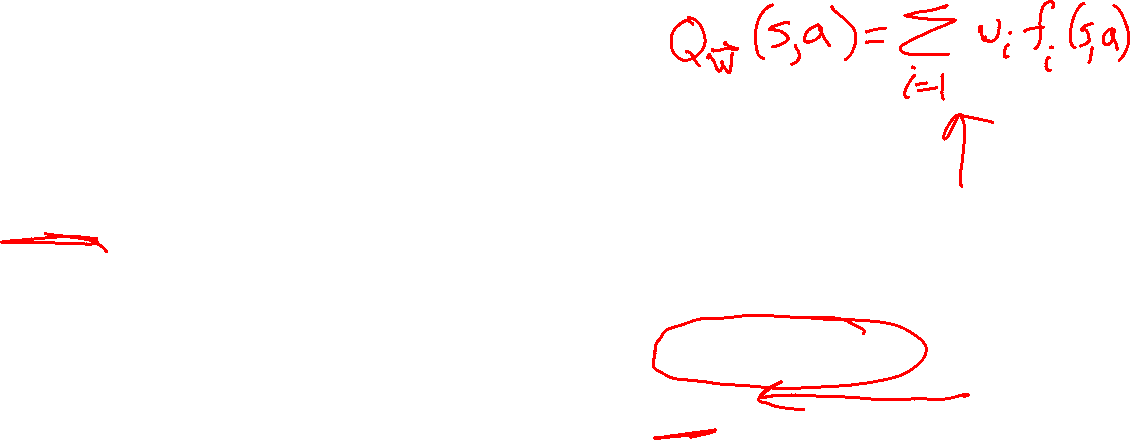 Q_{\vec{w}}(s,a) = \sum_{i=1} w_i f_i(s,a)